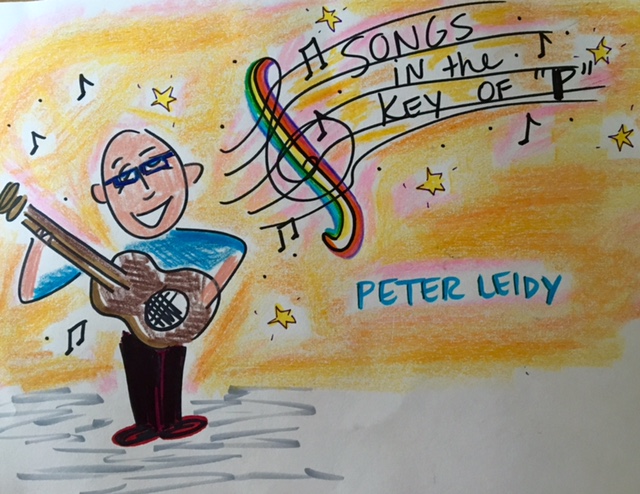 SONGS
IN the
KEY OF "P"
PETER LEIDY